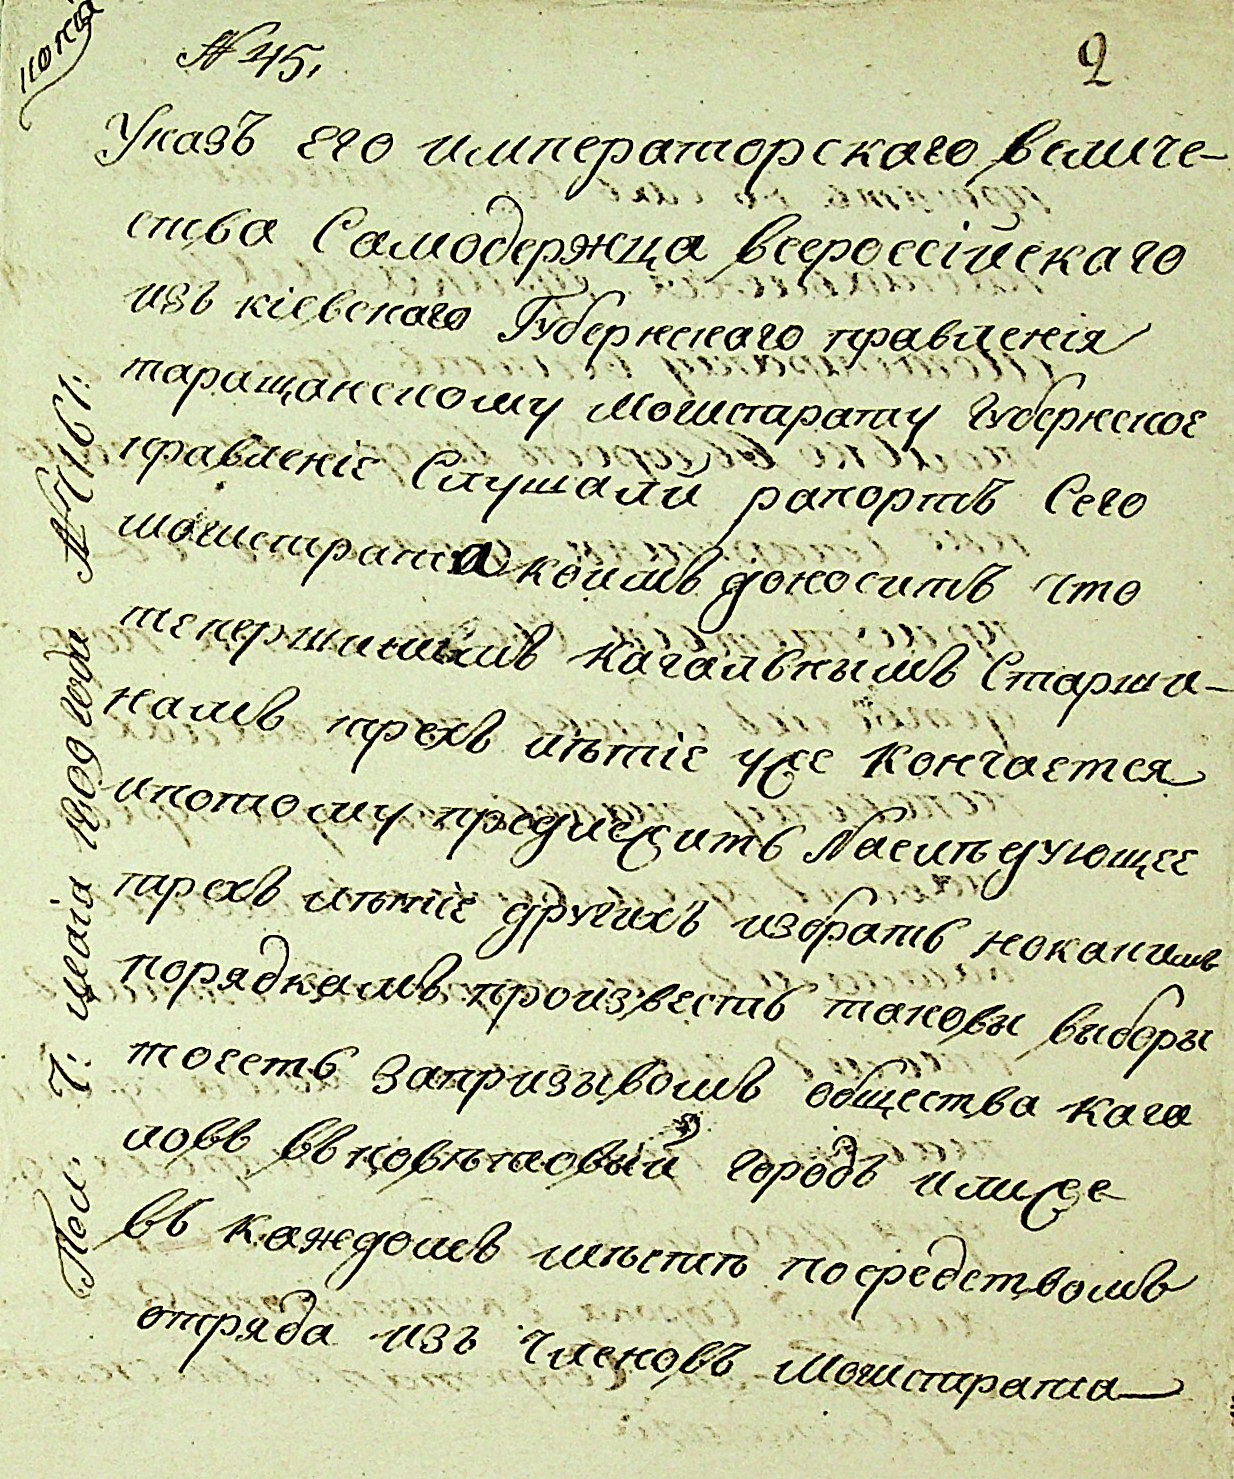 копія
№ 45,
2
Указъ его императорскаго величе-
ства Самодержца всероссійскаго
изъ кіевскаго Губернскаго правленія
таращанскому магистрату Губернское
правленіе Слушали рапортъ Сего
магистрата коимъ доноситъ что
теперешнимъ кагальнымъ Старши-
намъ трехъ лѣтіе уже кончается
ипотому предлежитъ Наслѣдующее
трехъ лѣтіе другихъ избрать нокакимъ
порядкамъ произвесть таковы выборы
тоесть Запризывомъ общества кага
ловъ въ повѣтовый городъ илиже
въ каждомъ мѣстѣ посредствомъ
отряда изъ Членовъ Магистрата
Пол. 7. іюля 1809 года №1161: